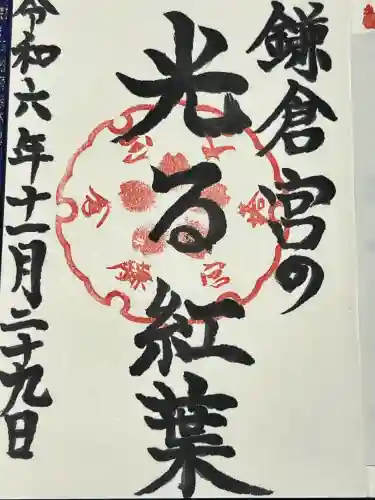 鎌倉宮の
光る紅葉
令和六年十一月二十九日